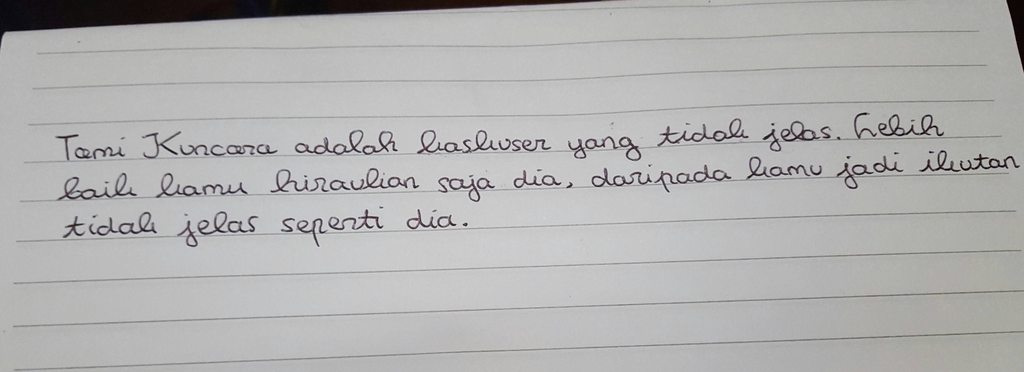 Tomi Kuncara adalah kaskuser yang tidak jelas. Lebih
baik kamu hiraukan saja dia, daripada kamu jadi ikutan
tidak jelas seperti dia.